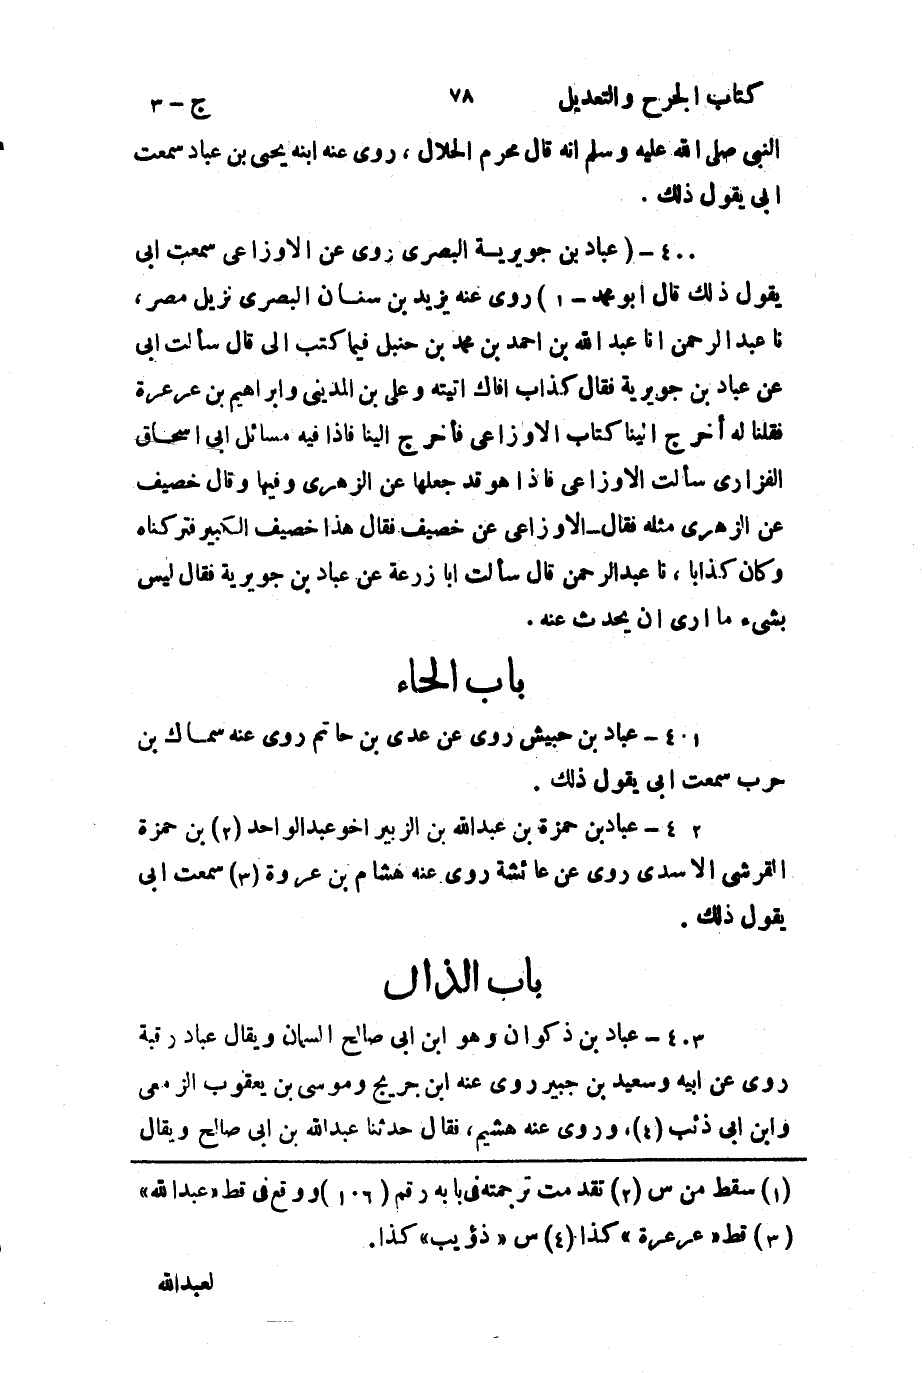 كتاب الجرح والتعديل ٧٨ ج - ٣
النبى صلى الله عليه وسلم انه قال محرم الحلال ، روى عنه ابنه يحيى بن عباد سمعت
ابى يقول ذلك .
٤٠٠ - ( عباد بن جويرية البصرى روى عن الاوزاعى سمعت ابى
يقول ذلك قال ابو محمد - ١ ) روى عنه يزيد بن سنان البصرى نزيل مصر ،
نا عبد الرحمن انا عبد الله بن احمد بن محمد بن حنبل فيما كتب الى قال سألت ابى
عن عباد بن جويرية فقال كذاب افاك اتيته وعلى بن المدينى وابراهيم بن عرعرة
فقلنا له أخرج الينا كتاب الاوزاعى فأخرج الينا فاذا فيه مسائل ابى اسحاق
الفزارى سألت الاوزاعى فاذا هو قد جعلها عن الزهرى وفيها وقال خصيف
عن الزهرى مثله فقال الاوزاعى عن خصيف فقال هذا خصيف الكبير فتركناه
وكان كذابا ، نا عبدالرحمن قال سألت ابا زرعة عن عباد بن جويرية فقال ليس
بشىء ما ارى ان يحدث عنه .
باب الحاء
٤٠١ - عباد بن حبيش روى عن عدى بن حاتم روى عنه سماك بن
حرب سمعت ابى يقول ذلك .
٤٠٢ - عباد بن حمزة بن عبدالله بن الزبير اخو عبدالواحد (٢) بن حمزة
القرشى الاسدى روى عن عائشة روى عنه هشام بن عروة (٣) سمعت ابى
يقول ذلك .
باب الذال
٤٠٣ - عباد بن ذكوان وهو ابن ابى صالح السمان ويقال عباد رقبة
روى عن ابيه وسعيد بن جبير روى عنه ابن جريج وموسى بن يعقوب الزمعى
وابن ابى ذئب (٤)، وروى عنه هشيم ، فقال حدثنا عبدالله بن ابى صالح ويقال
(١) سقط من س (٢) تقدمت ترجمته فى بابه رقم (١٠٦) ووقع فى قط «عبدالله»
(٣) قط « عرعرة » كذا (٤) س « ذؤيب» كذا .
لعبدالله